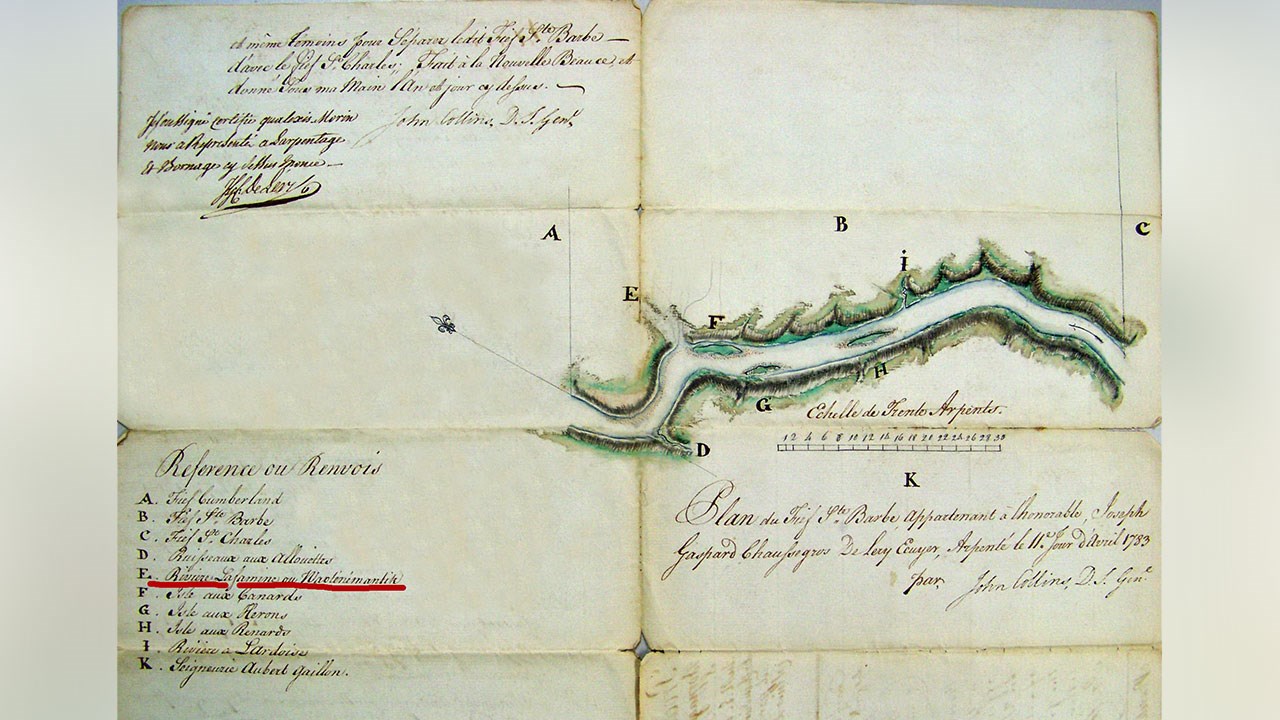 et même temoins pour Séparer ledit Fief Ste Barbe —
d'avec le fief St Charles; Fait à la Nouvelle Beauce, et
donné Sous ma Main l'An et jour cy dessus. —
John Collins, D. S. Genl
Je Soussigné certifie qu'alexis Morin
nous a Représenté a Larpentage
& Bornage cy dessus enoncé —
A
B
C
i
E
F
H
G
Echelle de Trente Arpents.
1 2 4 6 8 10 12 14 16 18 20 22 24 26 28 30
D
K
Reference ou Renvois
A. Fief Cumberland
B. Fief Ste Barbe
C. Fief St Charles
D. Ruisseaux aux Allouettes
E. Riviere Lafamine ou
F. Isle aux Canards
G. Isle aux Herons
H. Isle aux Renards
I. Riviere à Lardoise
K. Seigneurie Aubert Gaillon.
Plan du Fief Ste Barbe, appartenant à l'honorable, Joseph
Gaspard Chaussegros De Lery Ecuyer, Arpenté le 11e Jour d'Avril 1783
par John Collins, D. S. Genl